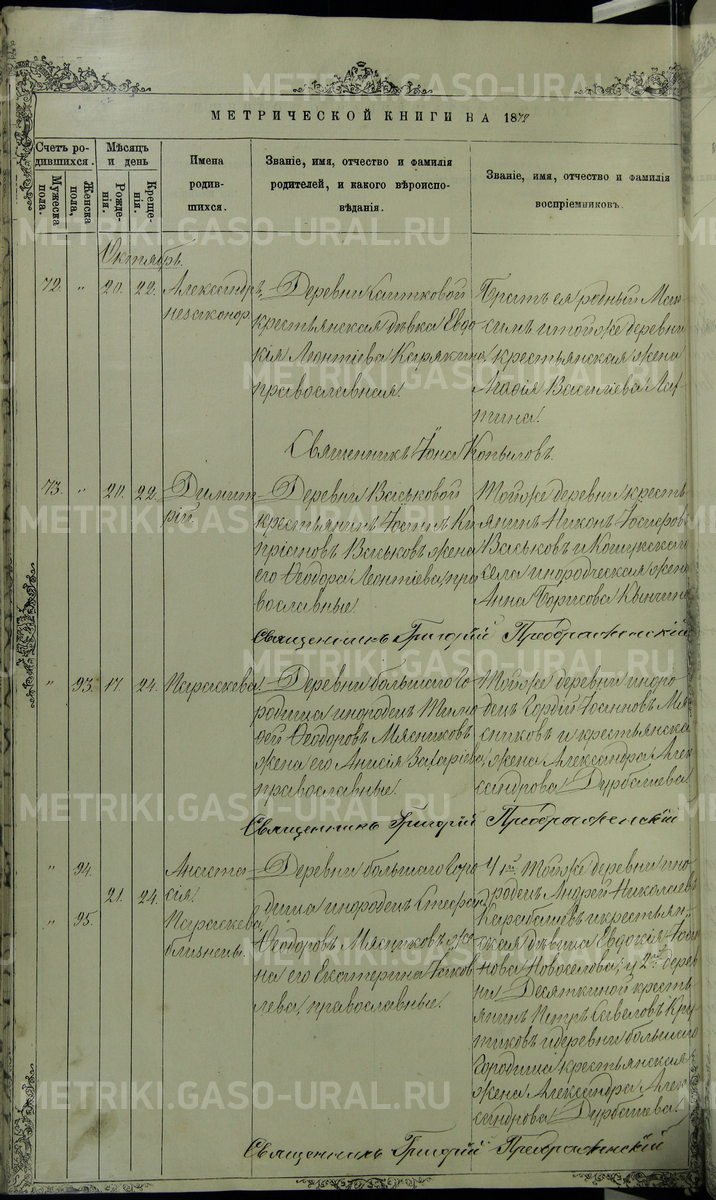 МЕТРИЧЕСКОЙ КНИГИ НА 1878
Счетъ ро-
дившихся.
Мужеска
пола.
Женска
пола.
Мѣсяцъ
и день
Рожде-
нія.
Креще-
нія.
Имена
родив-
шихся.
Званіе, имя, отчество и фамилія
родителей, и какого вѣроиспо-
вѣданія.
Званіе, имя, отчество и фамилія
воспріемниковъ.
Октябрь.
72. " 20. 22.
Александръ
незаконор.
Деревни
крестьянская дѣвка Евдо-
кія Леонтіева Карякина,
православная.
Братъ ея родный Мак-
симъ и тойже деревни
крестьянская жена
Агафія Василіева Лап-
тина.
Священникъ Іона Копыловъ.
73. " 20. 22.
Димит-
рій.
Деревни Васьковой
крестьянинъ Іоаннъ Ки-
пріановъ Васьковъ и жена
его Ѳеодора Леонтіева, пра-
вославные.
Тойже деревни кресть-
янинъ Никонъ Іосифовъ
Васьковъ и Кошукскаго
села инородческая жена
Анна Борисова
Священникъ Григорій Преображенскій
" 93. 17. 24.
Параскева.
Деревни большаго Го-
родища инородецъ Тимо-
фей Ѳеодоровъ Мясниковъ
жена его Анисія Захаріева,
православные.
Тойже деревни иноро-
децъ Гордій Іоанновъ Мя-
сниковъ и крестьянская
жена Александра Алек-
сандрова Дурбашева
Священникъ Григорій Преображенскій
" 94.
21. 24.
" 95.
Анаста-
сія.
Параскева,
близнецы.
Деревни большаго Горо-
дища инородецъ Стефанъ
Ѳеодоровъ Мясниковъ, же-
на его Екатерина Іаков-
лева, православные.
У 1-й Тойже деревни ино-
родецъ Андрей Николаевъ
Карабашевъ и крестьян-
ская дѣвица Евдокія Іоан-
нова Новоселова; у 2-й дерев-
ни Десяткиной кресть-
янинъ Петръ Савеловъ Кру-
тиковъ и деревни большаго
Городища крестьянская
жена Александра Алек-
сандрова Дурбашева.
Священникъ Григорій Преображенскій
METRIKI.GASO-URAL.RU